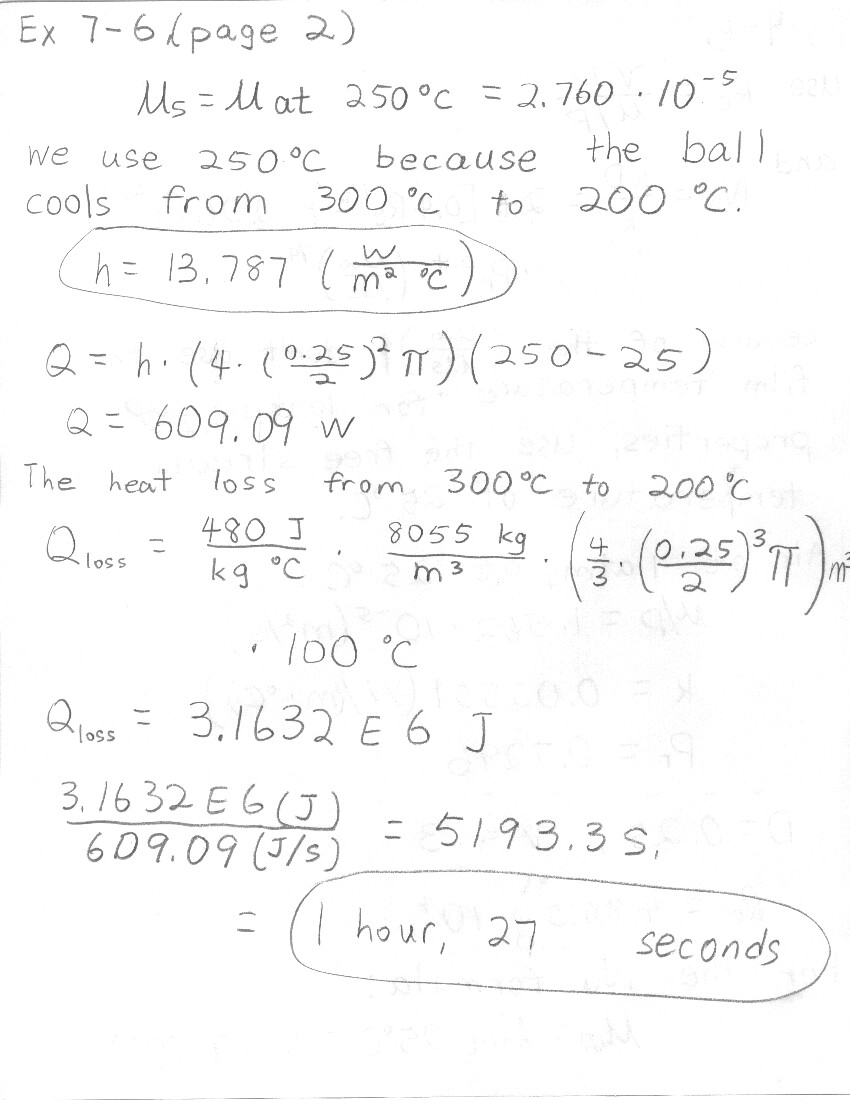 Ex 7-6 (page 2)
Ms = M at 250°C = 2.760 · 10^-5
we use 250°C because the ball
cools from 300°C to 200°C.
h = 13.787 (W/m² °C)
Q = h · (4 · (0.25/2)² π)(250 - 25)
Q = 609.09 W
The heat loss from 300°C to 200°C
Qloss = 480 J/kg °C · 8055 kg/m³ · (4/3 · (0.25/2)³ π) m³
· 100 °C
Qloss = 3.1632 E 6 J
3.1632 E6 (J)/609.09 (J/s) = 5193.3 s.
= 1 hour, 27 seconds